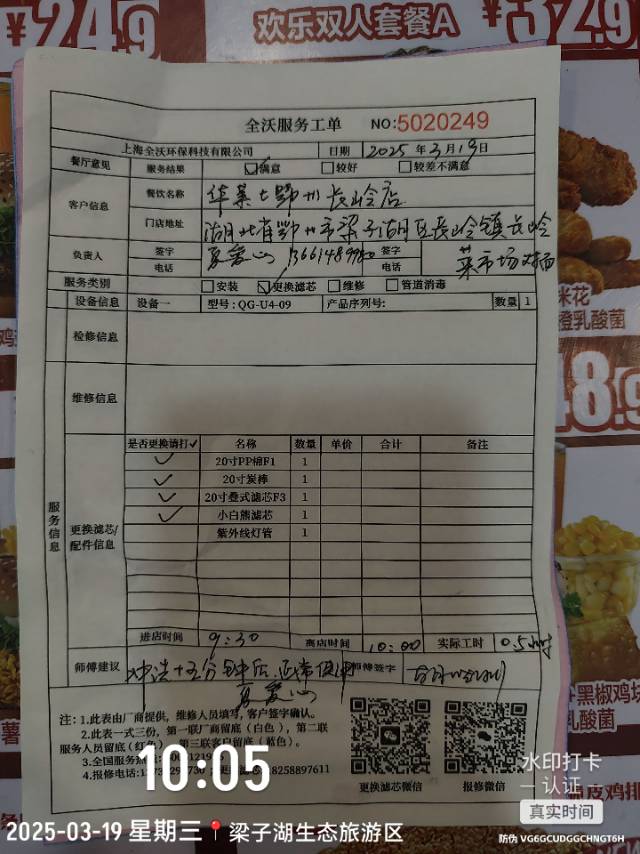 ¥24.9
欢乐双人套餐A
¥32.9
全沃服务工单 NO:5020249
上海全沃环保科技有限公司 日期 2025年3月19日
餐厅意见 服务结果 ☑满意 □较好 □较差不满意
客户信息 餐饮名称 华莱士鄂州长岭店
门店地址 湖北省鄂州市梁子湖区长岭镇长岭
菜市场对面
负责人 签字 签字
电话 电话
服务类别 □安装 ☑更换滤芯 □维修 □管道消毒
设备信息 设备一 型号:QG-U4-09 产品序列号: 数量 1
检修信息
维修信息
服务信息
更换滤芯/配件信息
是否更换请打✓ 名称 数量 单价 合计 备注
✓ 20寸PP棉F1 1
✓ 20寸炭棒 1
✓ 20寸叠式滤芯F3 1
✓ 小白熊滤芯 1
紫外线灯管 1
进店时间 9:30 离店时间 10:00 实际工时 0.5小时
师傅建议 冲洗十五分钟后,正常使用 师傅签字
注:1.此表由厂商提供,维修人员填写,客户签字确认。
2.此表一式三份,第一联厂商留底(白色),第二联
服务人员留底(红色) 第三联客户留底(蓝色)。
3.全国服务
4.报修电话: 18258897611
更换滤芯微信 报修微信
米花
橙乳酸菌
48.9
黑椒鸡
乳酸菌
皮鸡排
10:05
2025-03-19 星期三 梁子湖生态旅游区
水印打卡
认证
真实时间
防伪 VG6GCUDGGCHNGT6H